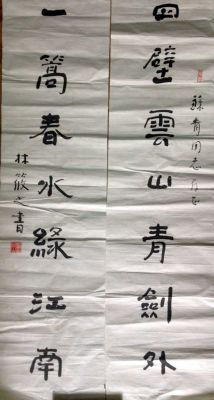 四壁雲山青劍外
蘇青同志
一篙春水綠江南
林筱之書